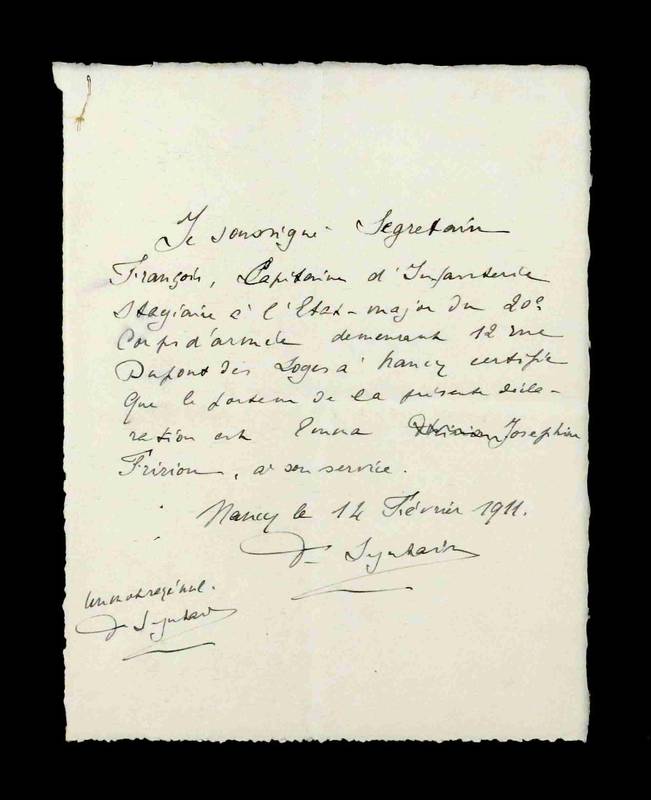 Je soussigné Segretain
François, Capitaine d'Infanterie
Stagiaire à l'Etat-major du 20e
Corps d'armée demeurant 12 rue
Dupont des Loges à Nancy certifie
que le porteur de la présente décla-
ration est Emma Josephine
Frizion, à son service.
Nancy le 14 Février 1911.
F. Segretain
un mot rayé nul.
F. Segretain